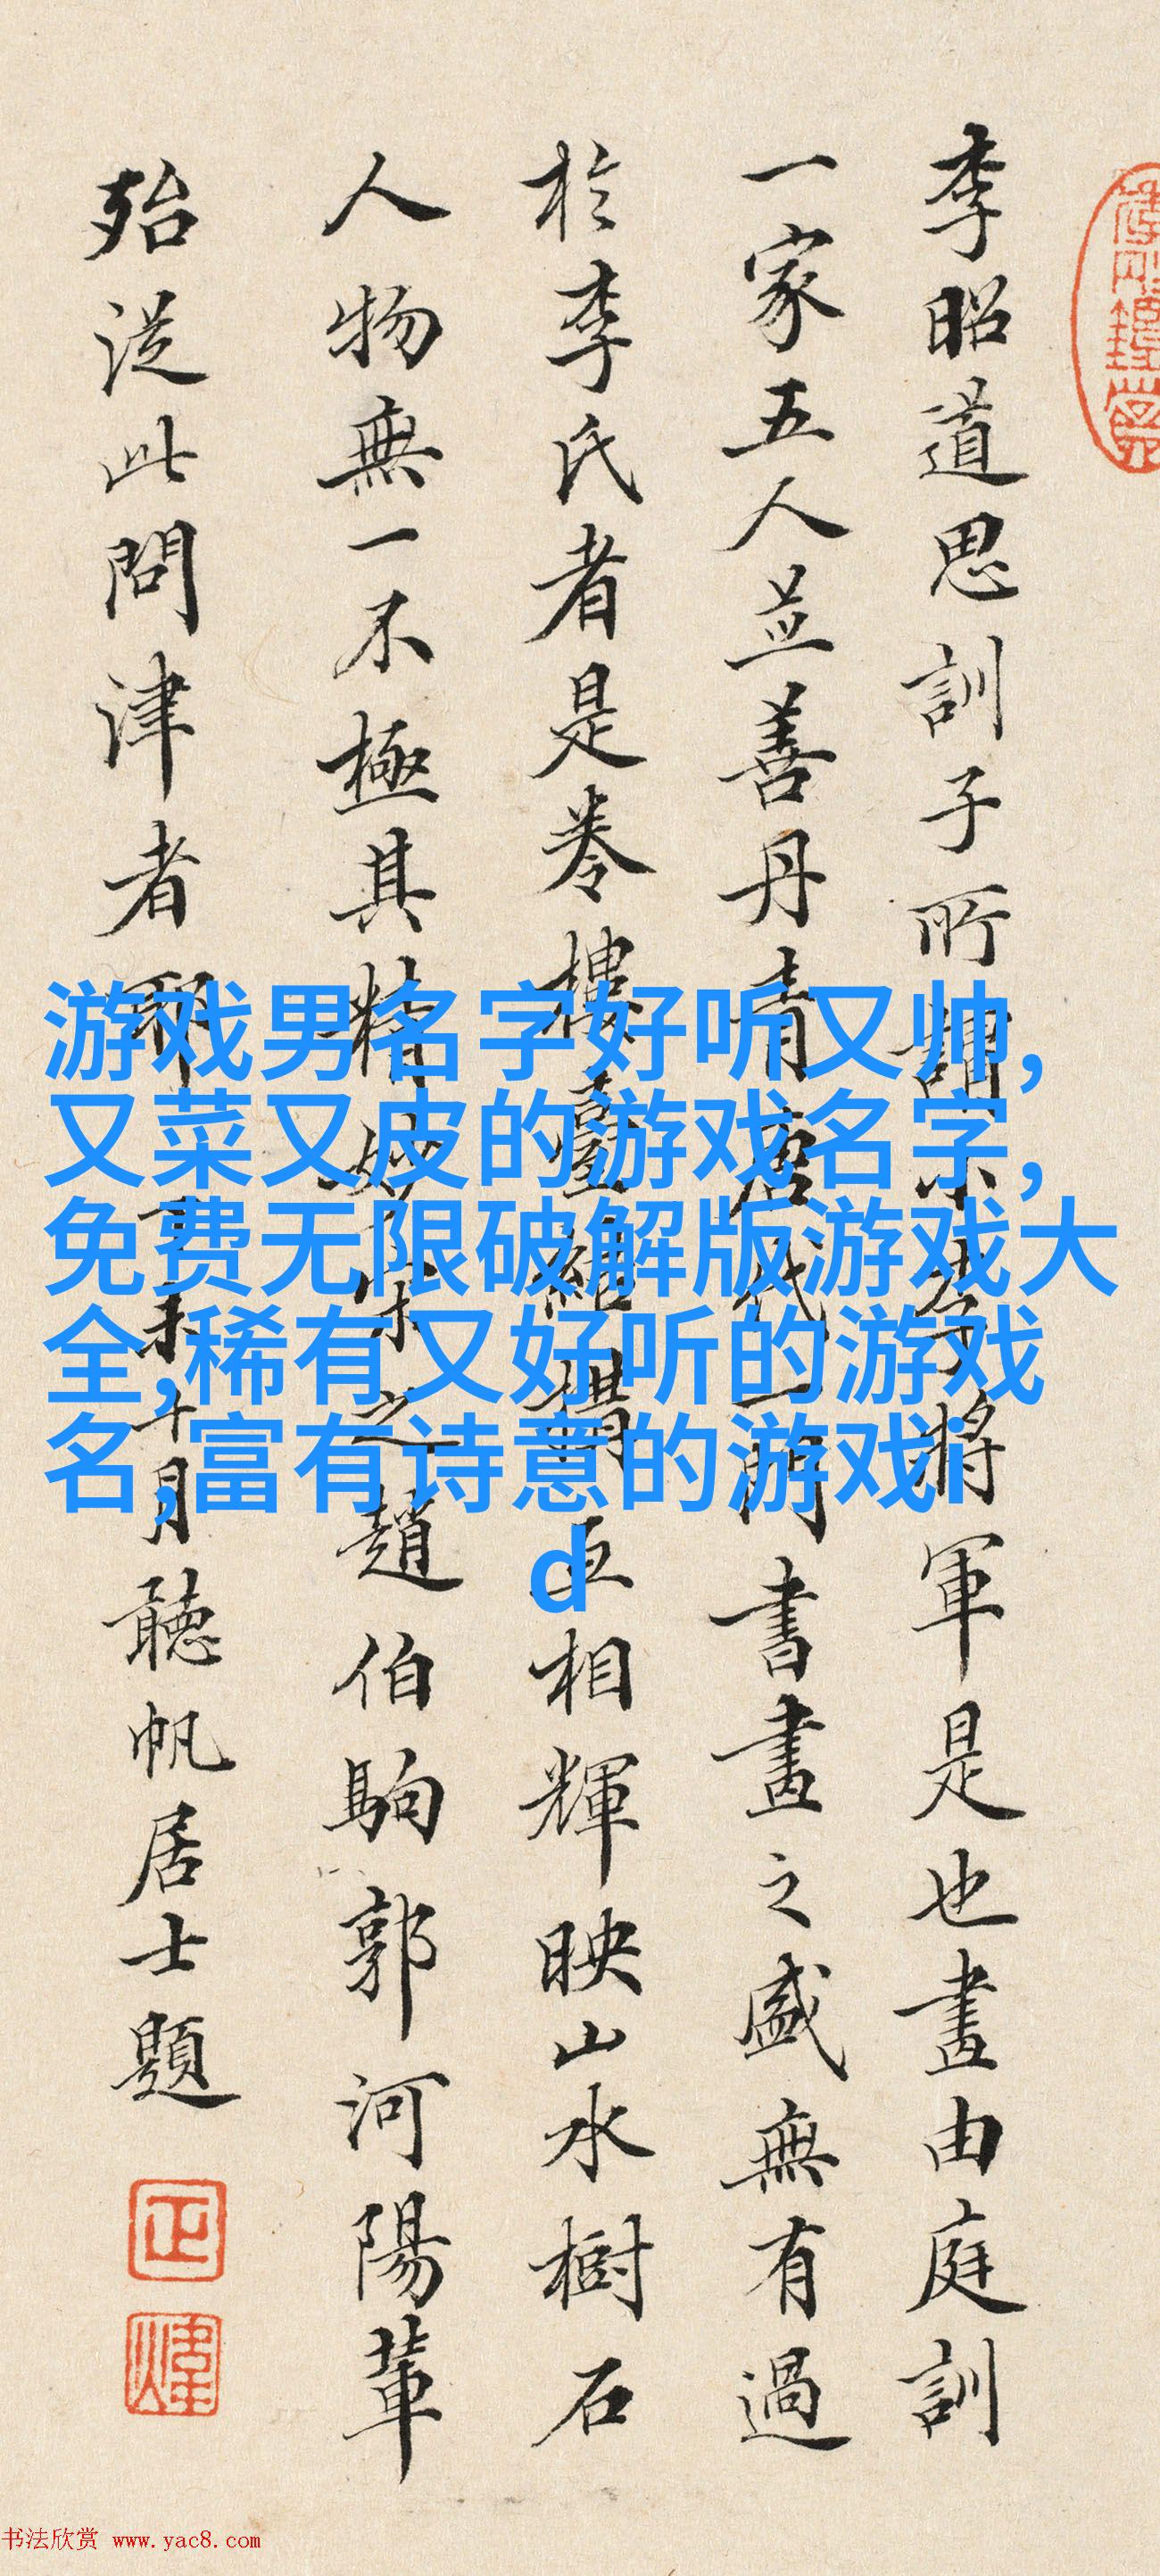 李昭道思訓子所謂小李將軍是也畫由庭訓
一家五人並善丹青唐代一門書畫之盛無有過
於李氏者是卷樓臺組搆互相輝映山水樹石
人物無一不極其精妙宋之趙伯駒郭河陽輩
殆從此問津者耶丁未十月聽帆居士題
游戏男名字好听又帅,
又菜又皮的游戏名字,
免费无限破解版游戏大
全,稀有又好听的游戏
名,富有诗意的游戏i
d
书法欣赏 www.yac8.com